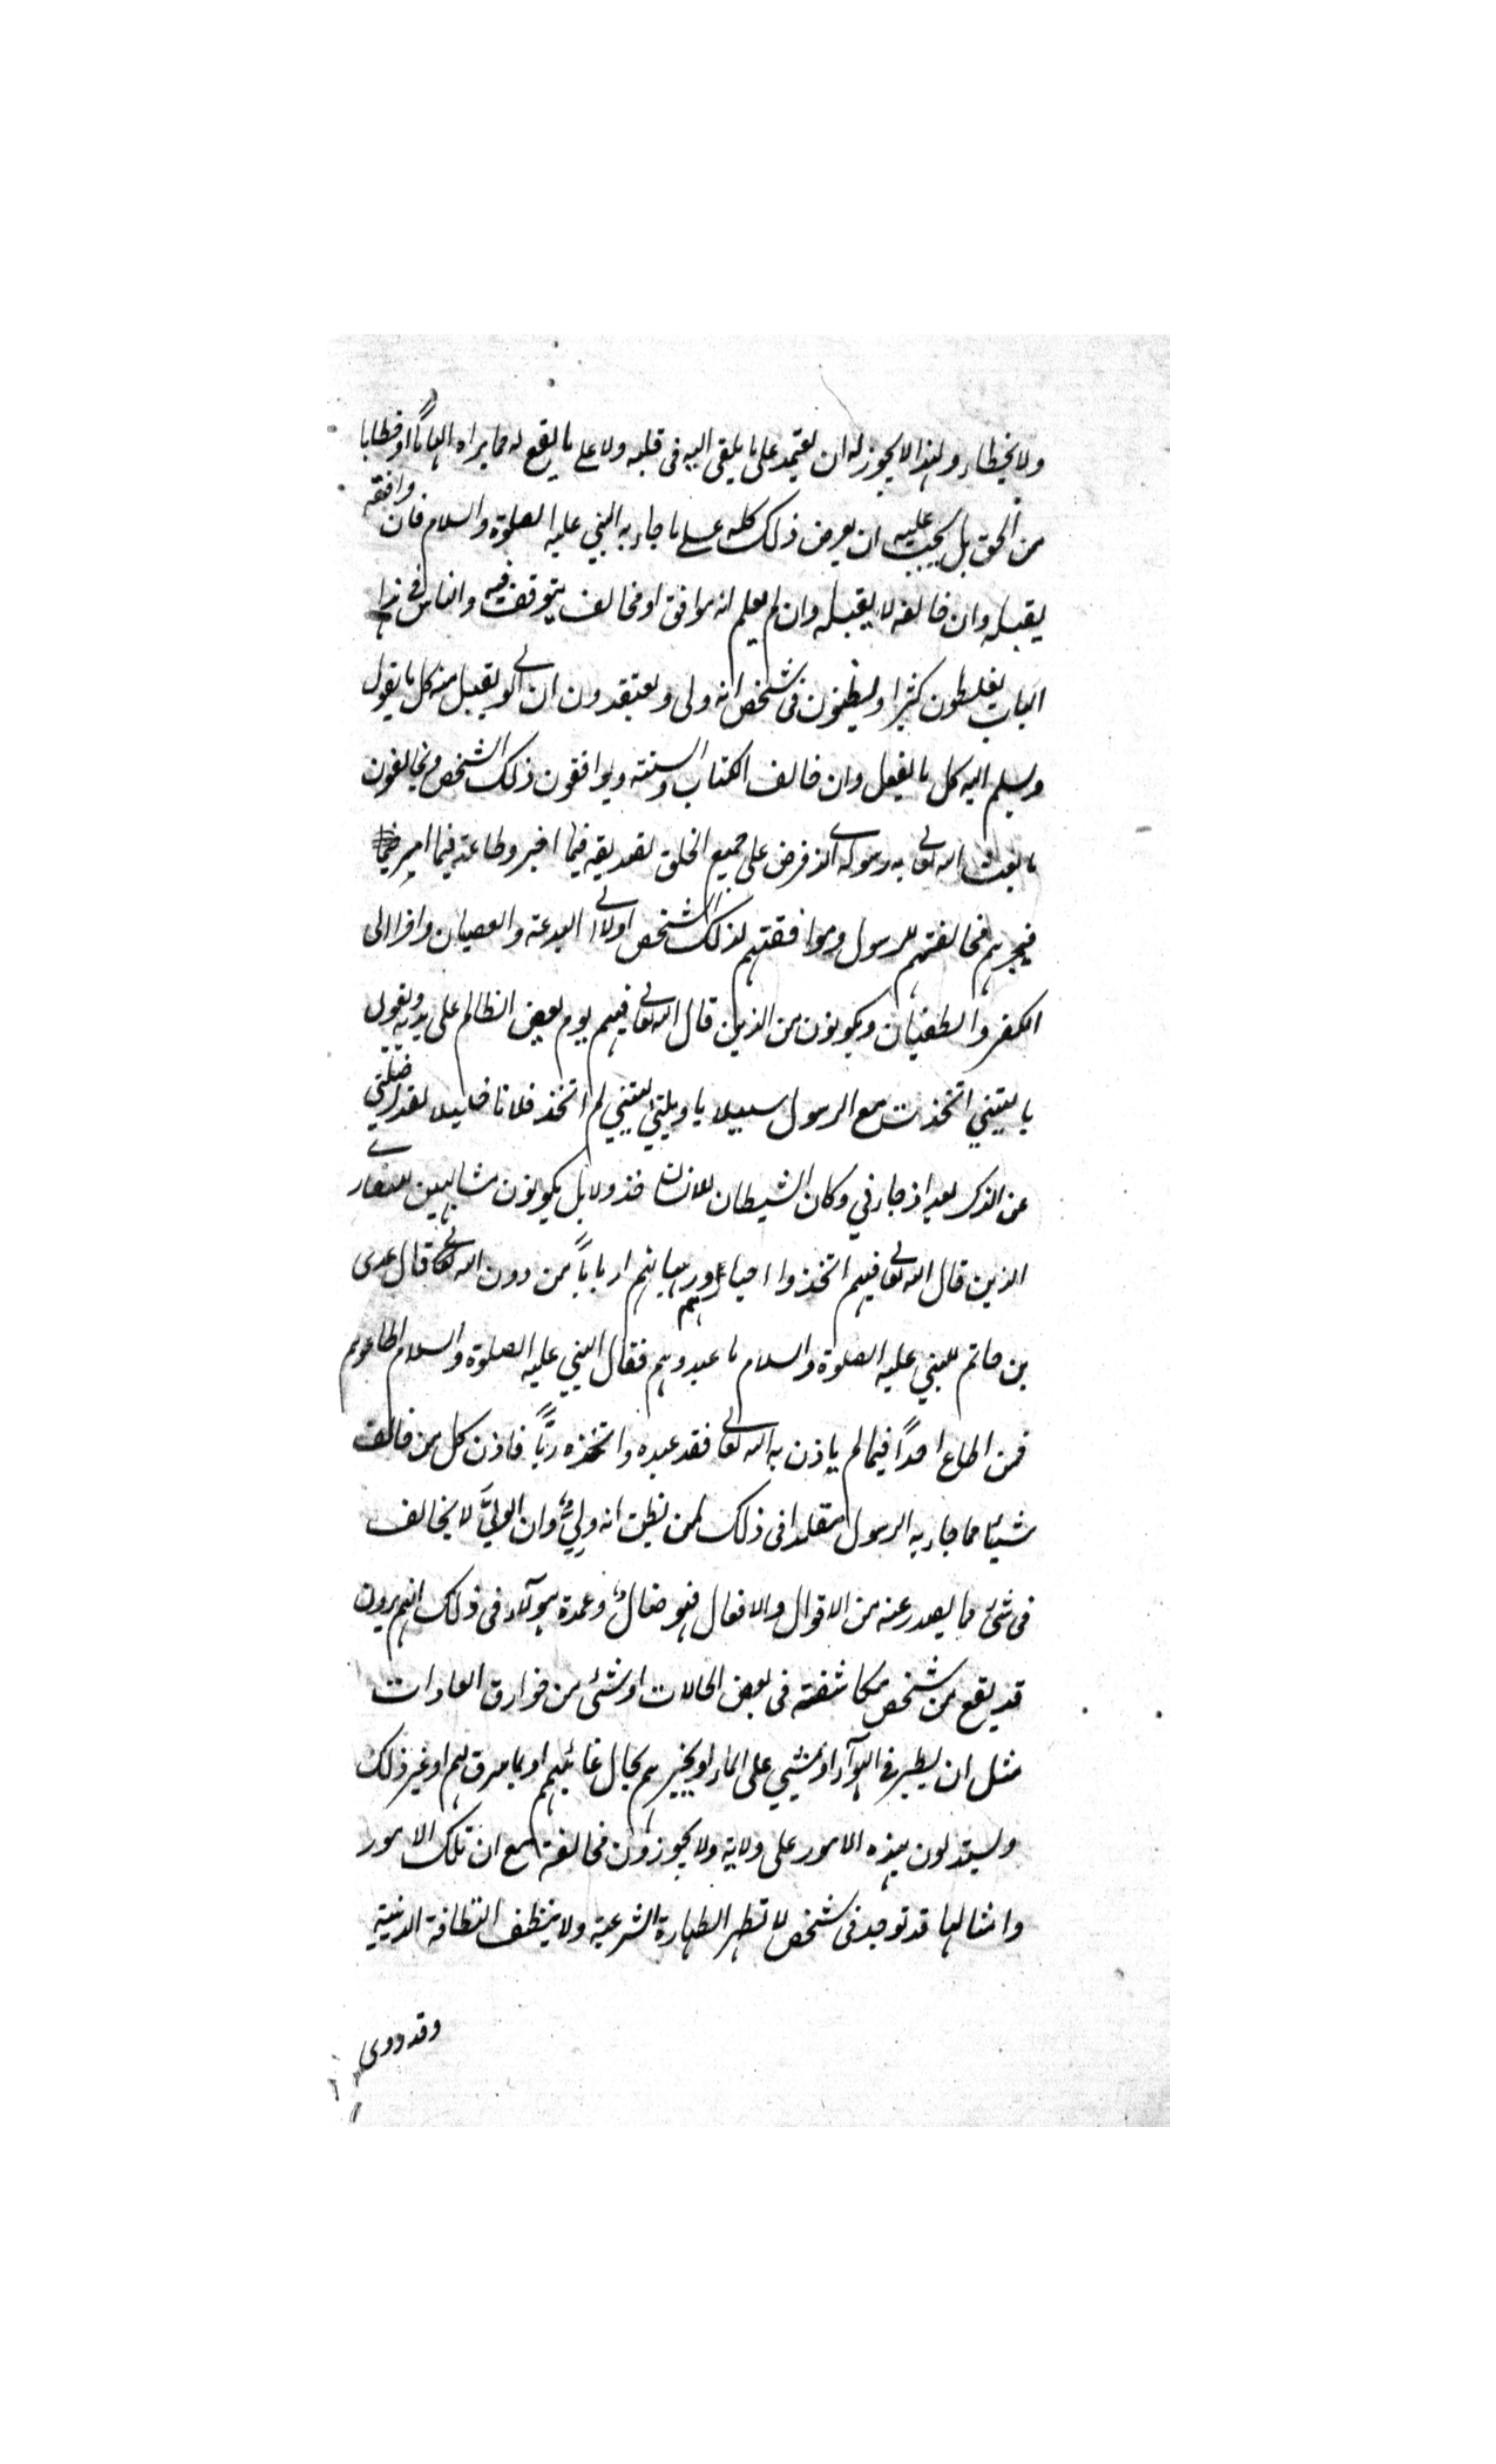 ولا يخطاء ولهذا لا يجوز له ان يعتمد على ما يلقى اليه فى قلبه ولا على ما يقع له مما يراه الهاماً او خطابا
من الحق بل يجب عليه ان يعرض ذلك كله على ما جاء به النبي عليه الصلوة والسلام فان وافقه
يقبله وان خالفه لا يقبله وان لم يعلم انه موافق او مخالف يتوقف فيه والناس في هذا
الباب يغلطون كثيرا ويظنون فى شخص انه ولى ويعتقدون ان الولي يقبل منه كل ما يقول
ويسلم اليه كل ما يفعل وان خالف الكتاب والسنة ويوافقون ذلك الشخص ويخالفون
ما بعث الله تعالى به رسوله الذے فرض على جميع الخلق تصديقه فيما اخبر وطاعته فيما امر
فيجرهم مخالفتهم للرسول وموافقتهم لذلك الشخص اولا الى البدعة والعصيان واخرا الى
الكفر والطغيان ويكونون من الذين قال الله تعالى فيهم يوم يعض الظالم على يديه ويقول
يا ليتني اتخذت مع الرسول سبيلا يا ويلتي ليتني لم اتخذ فلانا خليلا لقد اضلني
عن الذكر بعد اذ جاءني وكان الشيطان للانسان خذولا بل يكونون مشابهين للنصارے
الذين قال الله تعالى فيهم اتخذوا احبارهم ورهبانهم ارباباً من دون الله تعالى قال عدى
بن حاتم للنبي عليه الصلوة والسلام ما عبدوهم فقال النبي عليه الصلوة والسلام اطاعوهم
فمن اطاع احداً فيما لم ياذن به الله تعالى فقد عبده واتخذه ربّاً فاذن كل من خالف
شيئا مما جاء به الرسول مقلدا فى ذلك لمن يظن انه وليٌّ وان الوليَّ لا يخالف
فى شئ مما يصدر عنه من الاقوال والافعال فهو ضالٌ وعمدة هؤلاء فى ذلك انهم يرون
قد يقع من شخص مكاشفة فى بعض الحالات او شئ من خوارق العادات
مثل ان يطير فى الهوآء او يمشي على الماء او يخبرهم بحال غائبهم او بما سرق لهم او غير ذلك
ويستدلون بهذه الامور على ولايته ولا يجوزون مخالفته مع ان تلك الامور
وامثالها قد توجد فى شخص لا تطهر الطهارة الشرعية ولا يتنظف النظافة الدينية
وقد روى